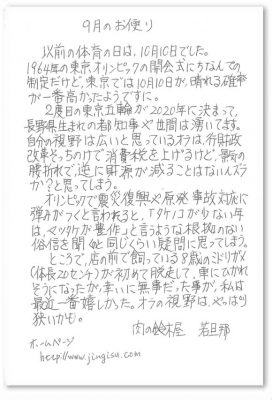 9月のお便り
以前の体育の日は、10月10日でした。
1964年の東京オリンピックの開会式にちなんでの
制定だけど、東京では10月10日が、晴れる確率
が一番高かったようですに。
2度目の東京五輪が2020年に決まって、
長野県生まれの都知事や世間は湧いてます。
自分の視野は広いと思っているオラは、行財政
改革そっちのけで消費税を上げるけど、景気の
腰折れで、逆に財源が減ることはないんズラ
か?と思ってしまう。
オリンピックで震災復興や原発事故対応に
弾みがつくと言われると、「タケノコが少ない年
は、マツタケが豊作」と言うような根拠のない
俗信を聞くのと同じくらい疑問に思ってしまう。
ところで、店の前で飼っている8歳のミドリガメ
(体長20センチ)が初めて脱走して、車にひかれ
そうになったが、幸いに無事だった事が、私は
最近一番嬉しかった。オラの視野は、やっぱり
狭いかも。
肉の鈴木屋 若旦那
ホームページ
http://www.jingisu.com